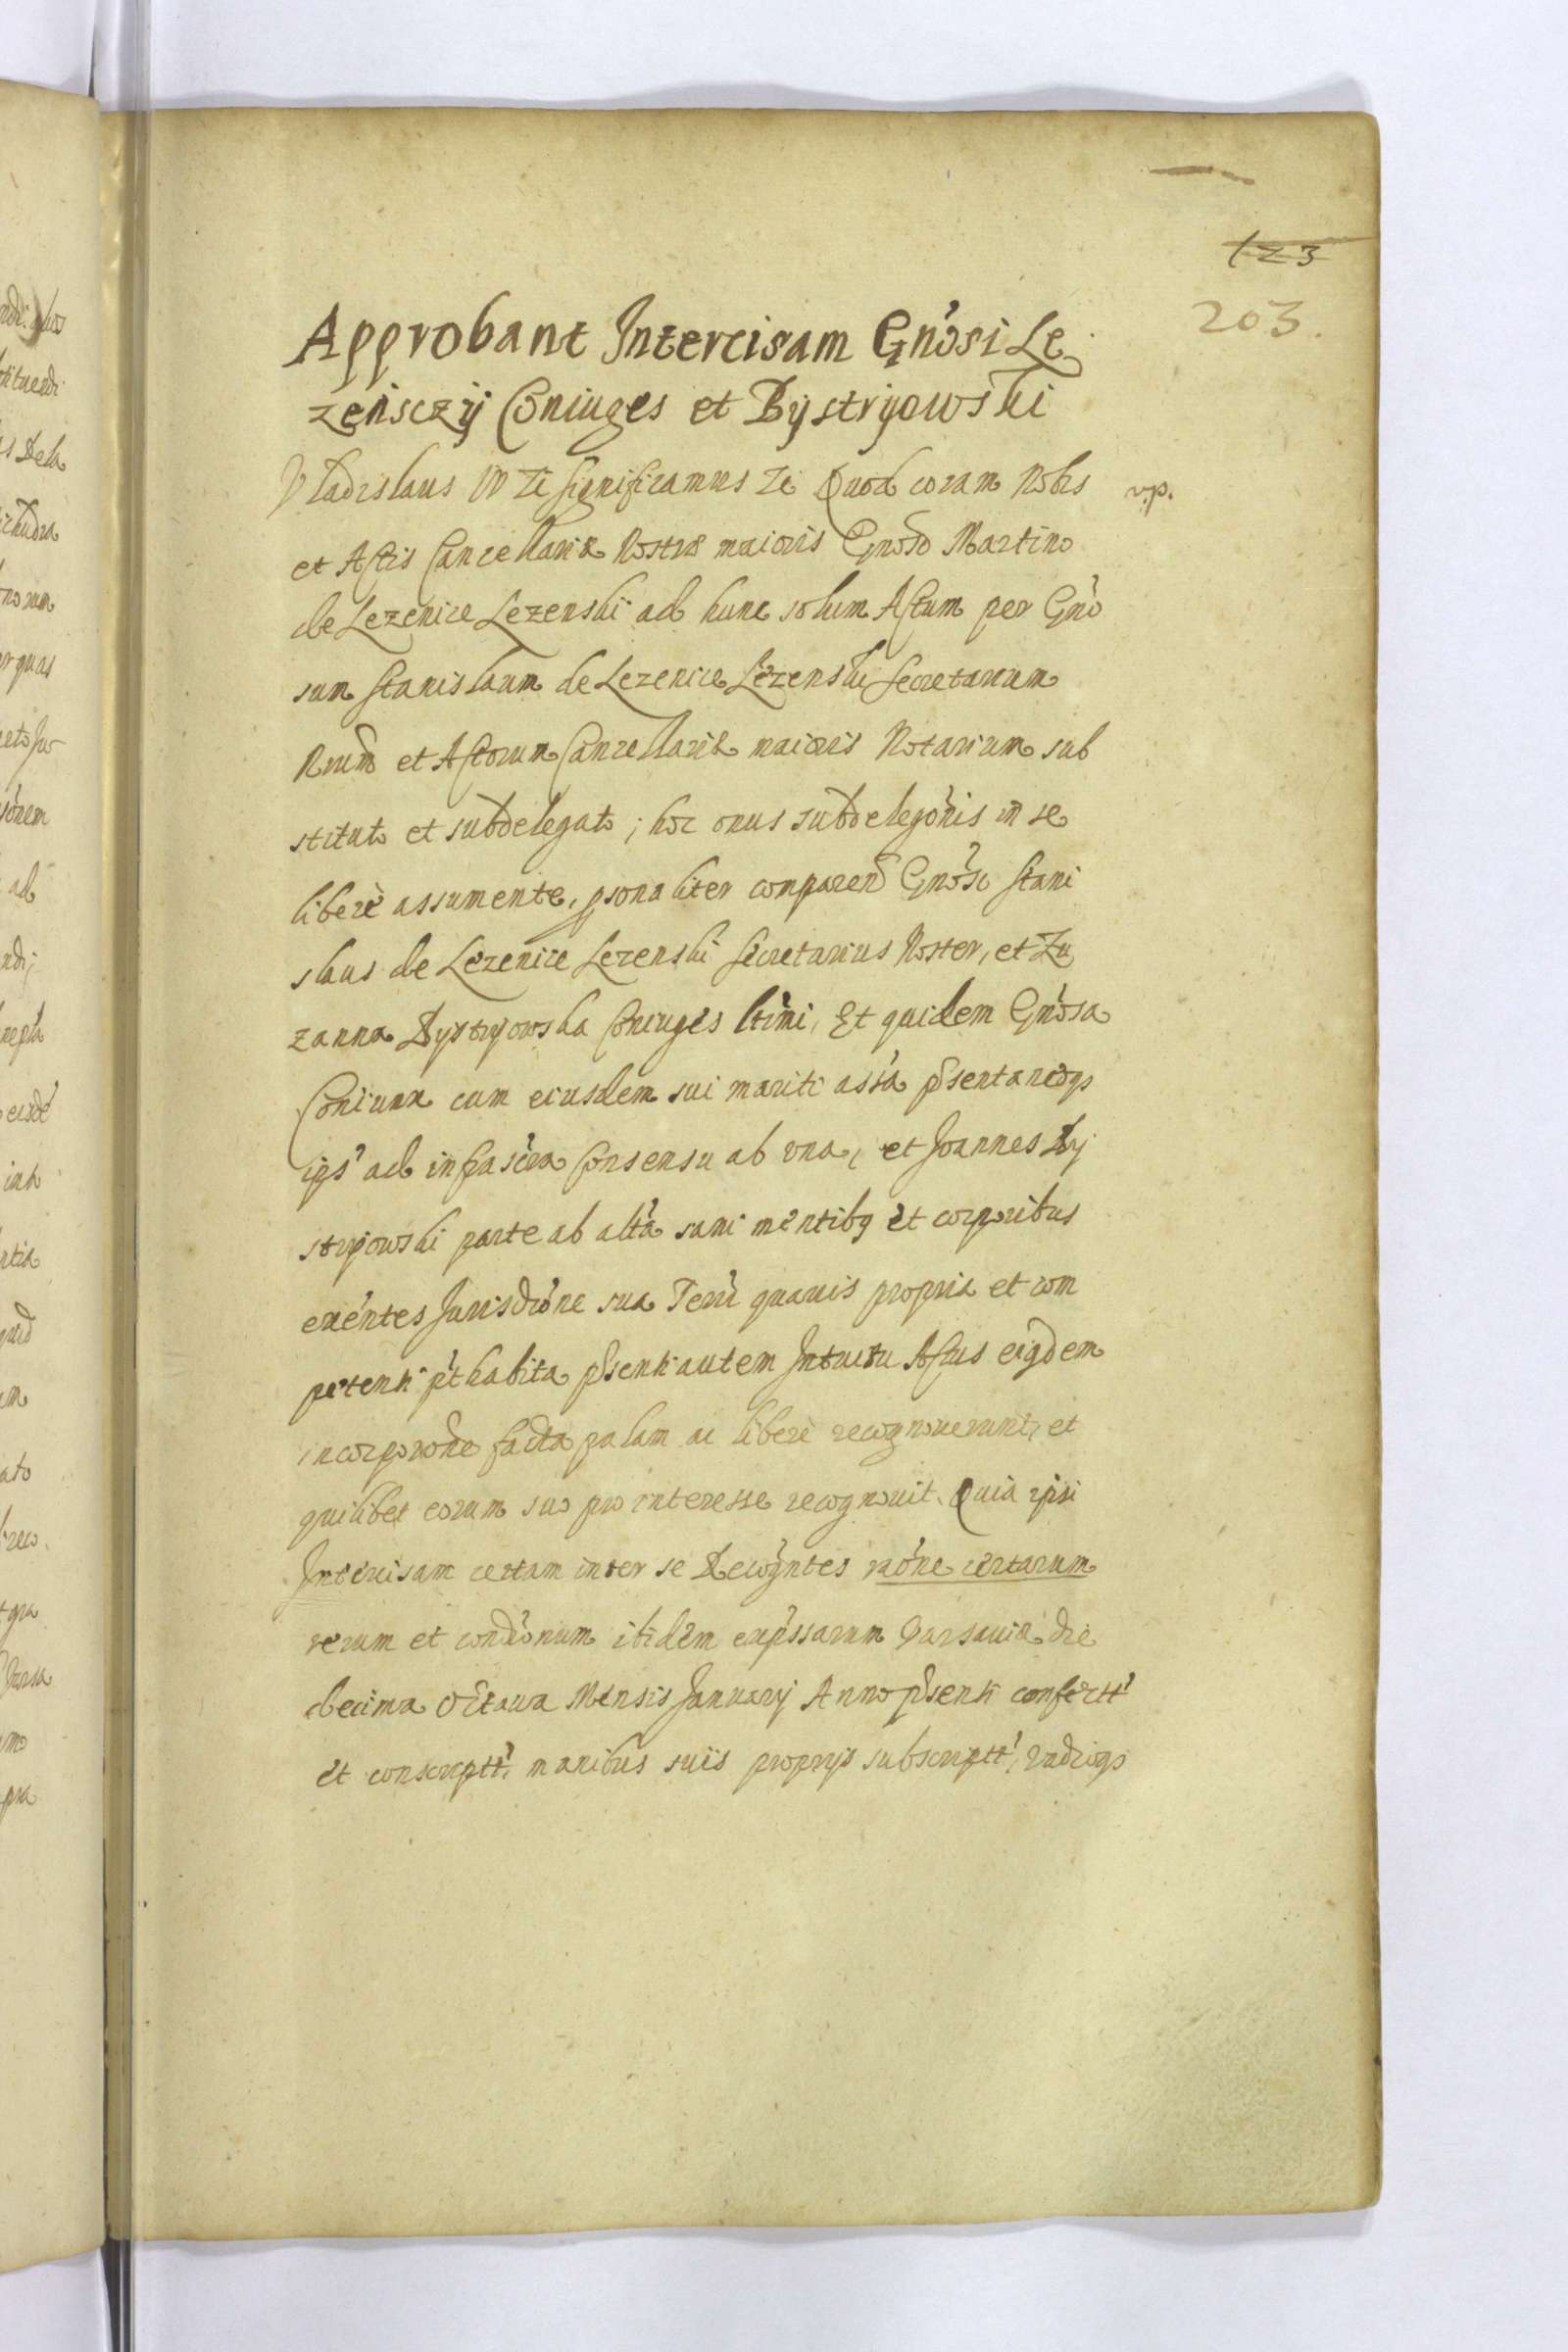 123
203.
Approbant Intercisam Gnősi Le
zenisczÿ Coniuges et Bÿstrÿowski
Vladislaus IV Significamus Quod coram Nobis v.p.
et Actis Cancellariæ Nostræ maioris Gnoso Martino
de Lezenice Lezenski ad hunc solum Actum per Gnō
sum Stanislaum de Lezenice Lezenski Secretarium
Nrum et Actorum Cancellariæ maioris Notarium sub
stituto et subdelegato; hoc onus subdelegōnis in se
liberè assumente, psonaliter comparen Gnōsi Stani
slaus de Lezenice Lezenski Secretarius Noster, et Zu
zanna Bystryowska Coniuges ltimi, Et quidem Gnōsa
Coniunx cum eiusdem sui mariti assa psentaneoqs
ips' ad infrascra Consensu ab vna, et Joannes By
stryowski parte ab altā sani mentibq et corporibus
exentes Jurisdione sua Terri quauis propria et com
petenti pt habita psenti autem Intuitu Actus eiqdem
incorporōne facta palam ac liberè recognouerunt, et
quilibet eorum suo pro interesse recognouit. Quia ipsi
Intercisam certam inter se Recogntes raōne certarum
rerum et condionum itidem expssarum Varsauiæ die
decima Octaua Mensis Januarÿ Anno psenti confectt'
et conscriptt' manibus suis proprÿs subscriptt',